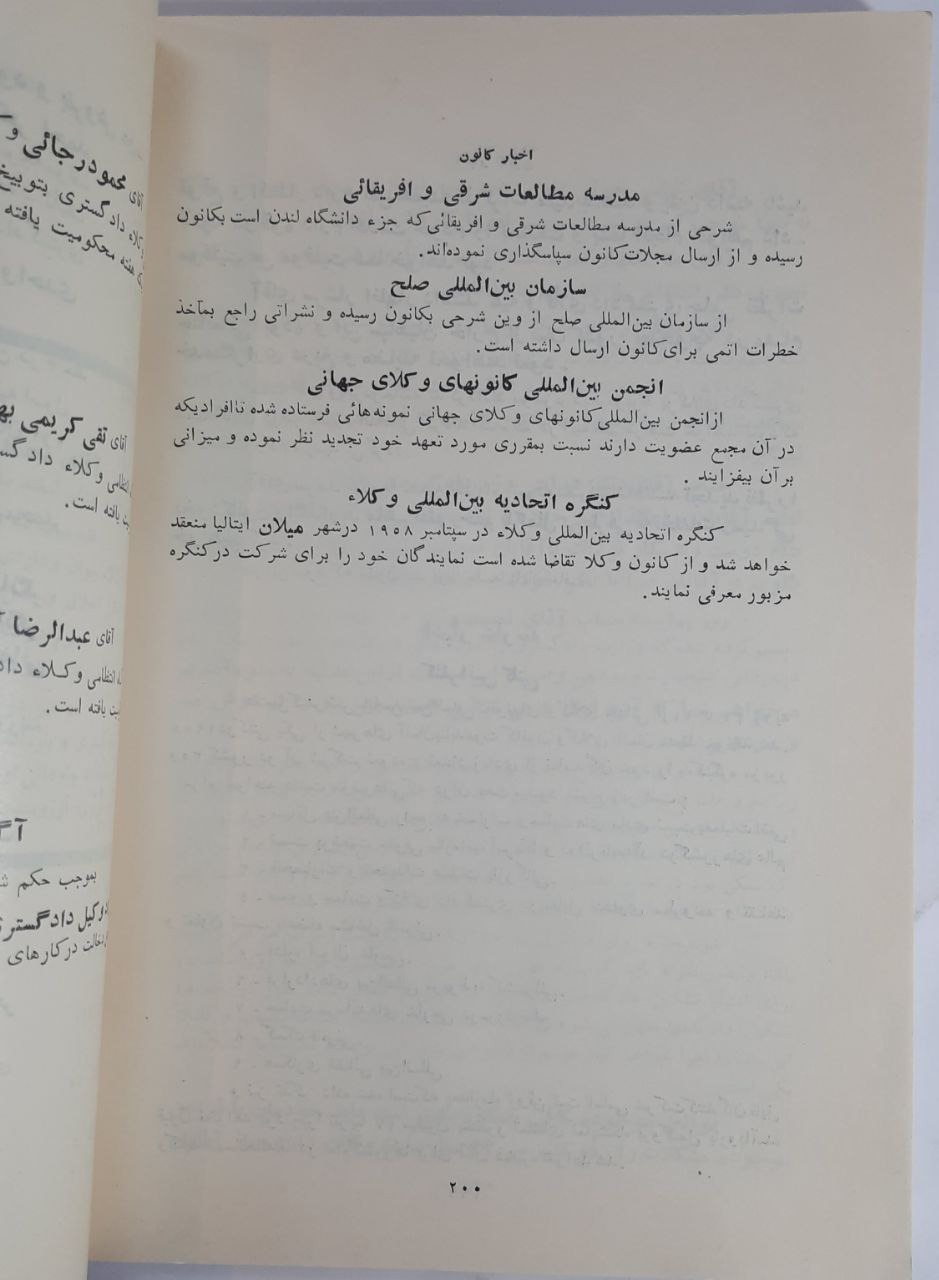 اخبار کانون
مدرسه مطالعات شرقی و افریقائی
شرحی از مدرسه مطالعات شرقی و افریقائی که جزء دانشگاه لندن است بکانون
رسیده و از ارسال مجلات کانون سپاسگذاری نموده‌اند.
سازمان بین‌المللی صلح
از سازمان بین‌المللی صلح از وین شرحی بکانون رسیده و نشراتی راجع بمآخذ
خطرات اتمی برای کانون ارسال داشته است.
انجمن بین‌المللی کانونهای وکلای جهانی
از انجمن بین‌المللی کانونهای وکلای جهانی نمونه‌هائی فرستاده شده تا افرادیکه
در آن مجمع عضویت دارند نسبت بمقرری مورد تعهد خود تجدید نظر نموده و میزانی
بر آن بیفزایند .
کنگره اتحادیه بین‌المللی وکلاء
کنگره اتحادیه بین‌المللی وکلاء در سپتامبر ۱۹۵۸ در شهر میلان ایتالیا منعقد
خواهد شد و از کانون وکلا تقاضا شده است نمایندگان خود را برای شرکت در کنگره
مزبور معرفی نمایند.
۲۰۰
آقای محمود رجائی و
وکلاء دادگستری بتوبیخ
هفته محکومیت یافته
آقای تقی کریمی
انتظامی وکلاء
یافته است.
آقای عبدالرضا
انتظامی وکلاء
یافته است .
بموجب حکم
وکیل دادگستری
در کارهای